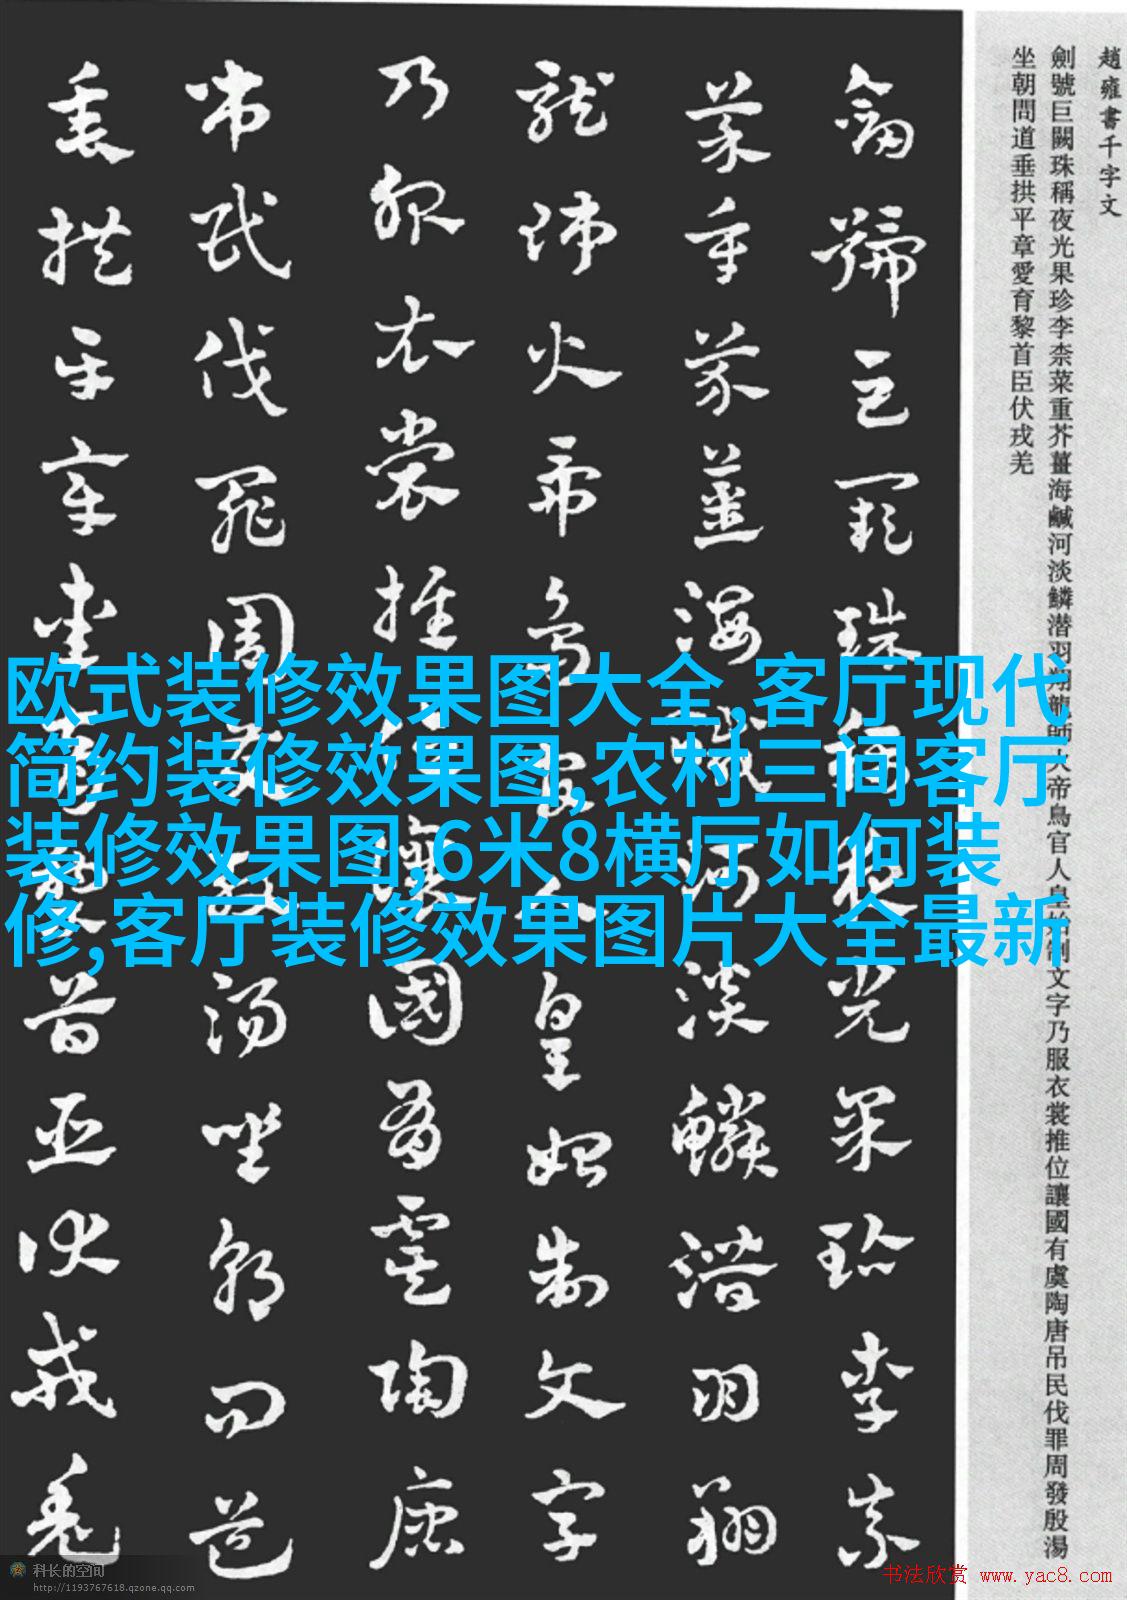 趙雍書千字文
劍號巨闕珠稱夜光果珍李柰菜重芥薑海鹹河淡鱗潜羽翔龍師火帝鳥官人皇始制文字乃服衣裳推位讓國有虞陶唐吊民伐罪周發殷湯
坐朝問道垂拱平章愛育黎首臣伏戎羌
劍號巨闕珠稱夜光果珍李柰
菜重芥薑海鹹河淡鱗潜羽翔
龍師火帝鳥官人皇始制文字
乃服衣裳推位讓國有虞陶唐
吊民伐罪周發殷湯坐朝問道
垂拱平章愛育黎首臣伏戎羌
欧式装修效果图大全,客厅现代
简约装修效果图,农村三间客厅
装修效果图,6米8横厅如何装
修,客厅装修效果图片大全最新
科长的空间
http://1193767618.qzone.qq.com
书法欣赏 www.yac8.com